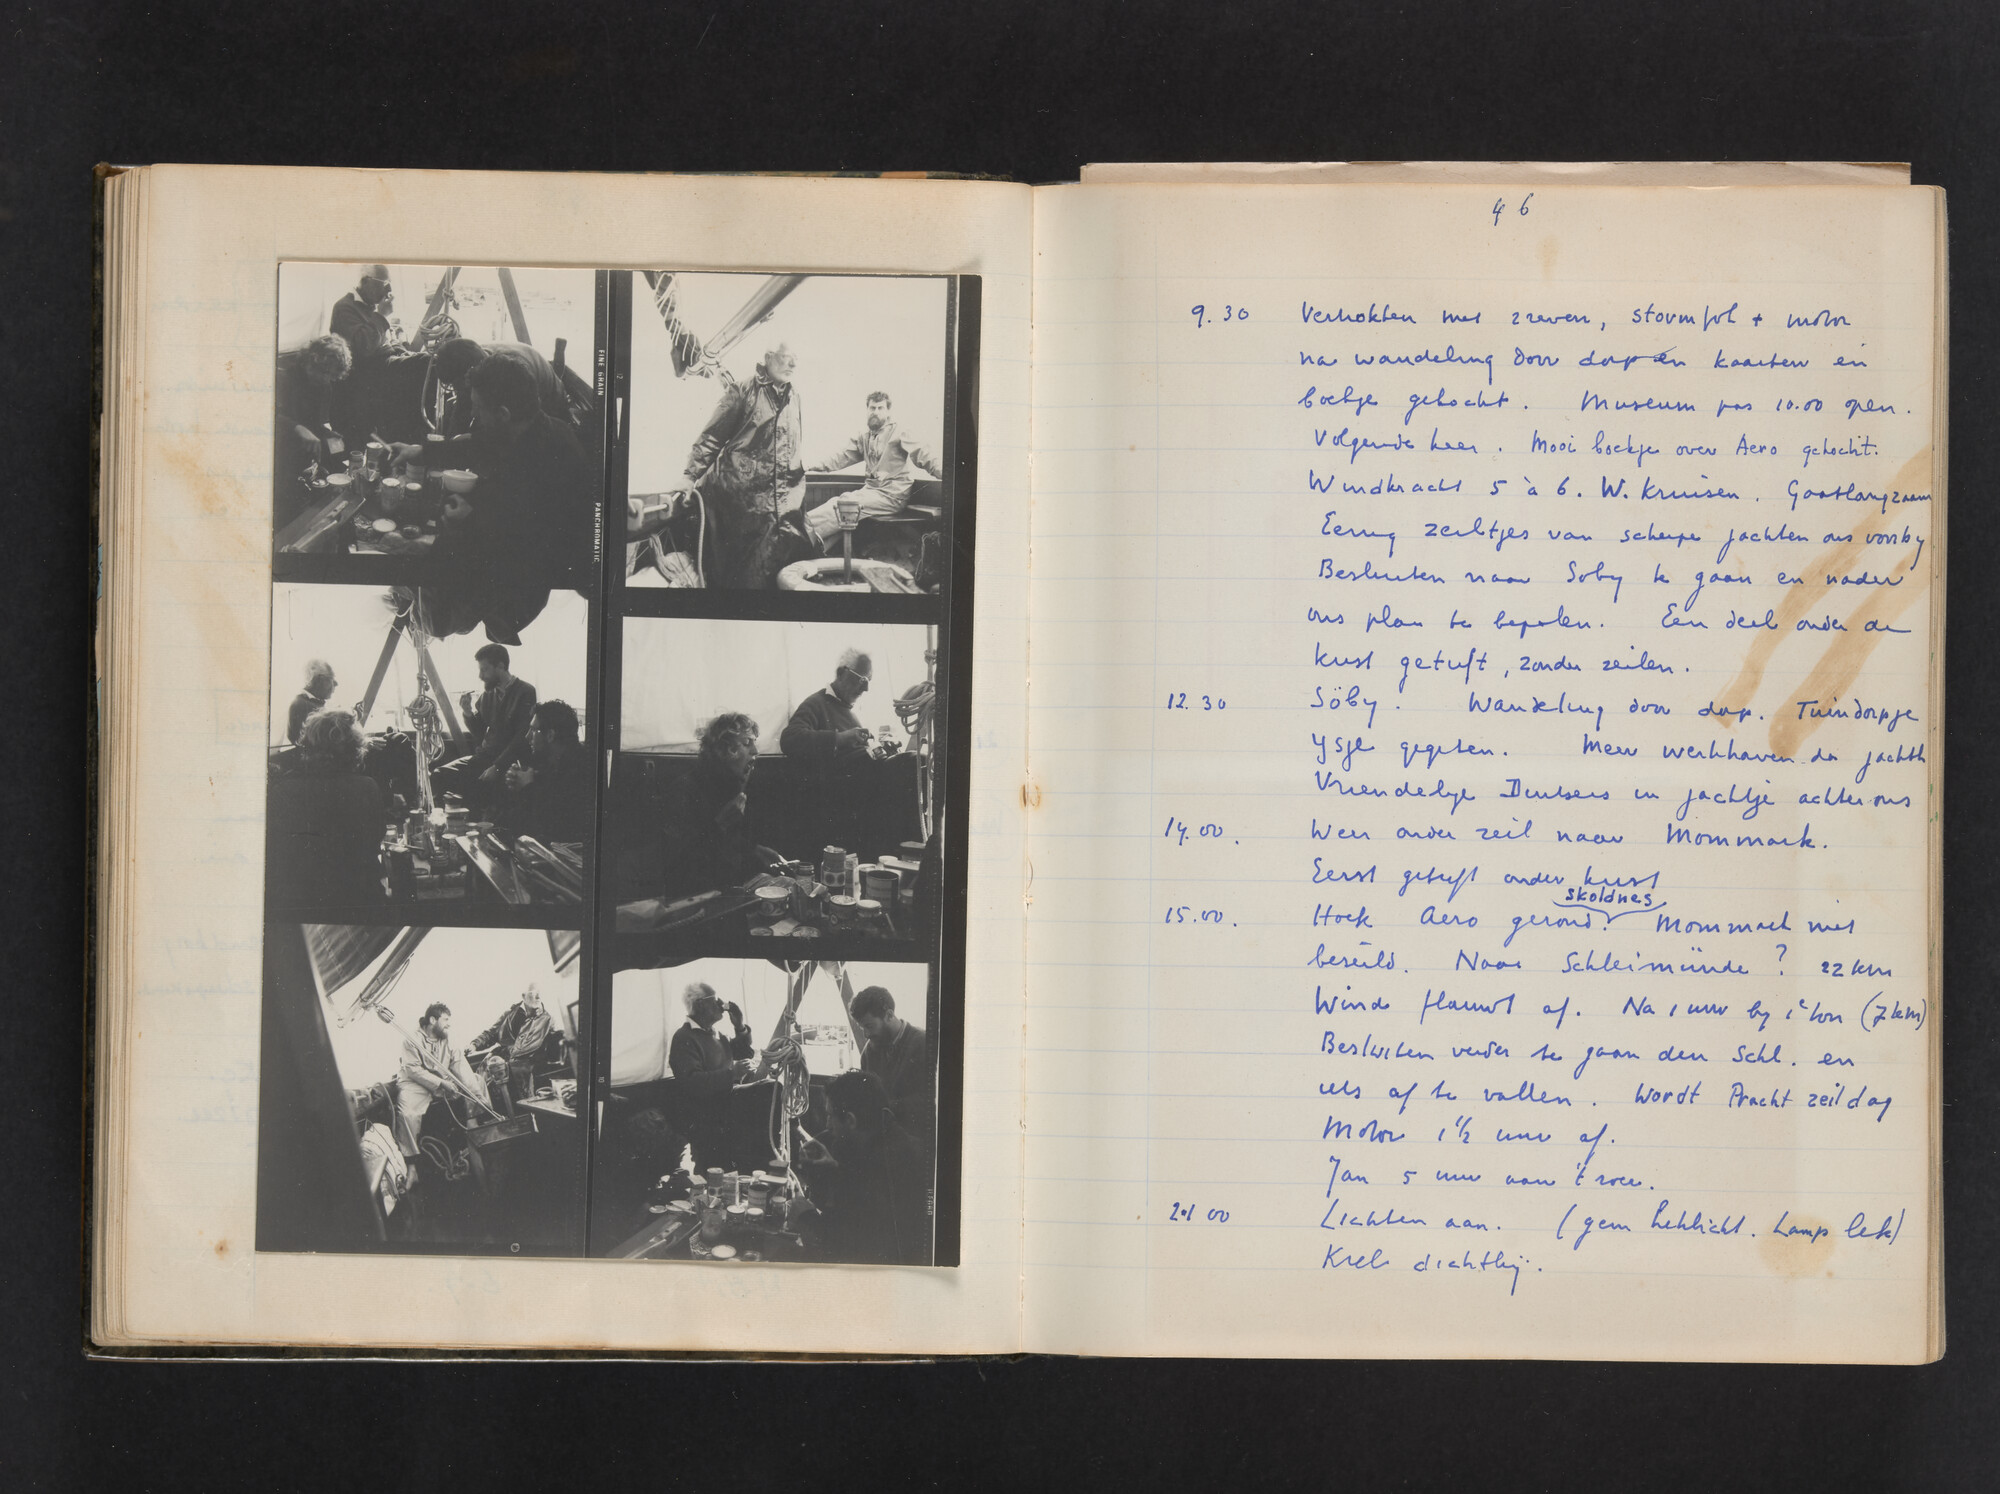 FINE GRAIN
PANCHROMATIC
12
11
10
ILFORD
46
9.30 Vertrokken met 2 reven, stormfok + motor
na wandeling door dorp en kaarten en
boekje gekocht. Museum pas 10.00 open.
Volgende keer. Mooi boekje over Aero gekocht.
Windkracht 5 à 6. W. Kruisen. Gaat langzaam
Eenig zeiltjes van scherpe jachten ons voorby
Besluiten naar Soby te gaan en nader
ons plan te bepalen. Een deel onder de
kust getuft, zonder zeilen.
12.30 Söby. Wandeling door dorp. Tuindorpje
Ysje gegeten. Meer werkhaven dan jachth
Vriendelyke Duitsers in jachtje achter ons
14.00. Weer onder zeil naar Mommark.
Eerst getuft onder kust
skoldnes
15.00. Hoek Aero gerond. Mommark niet
bezeild. Naar Schleimünde? 22 km
Wind flauwt af. Na 1 uur by 1e ton (7 km)
Besluiten verder te gaan den Schl. en
iets af te vallen. Wordt Pracht zeildag
Motor 1 1/2 uur af.
Jan 5 uur aan 't roer.
21 00 Lichten aan. (geen heklicht. Lamp lek)
Kiel dichtbij.